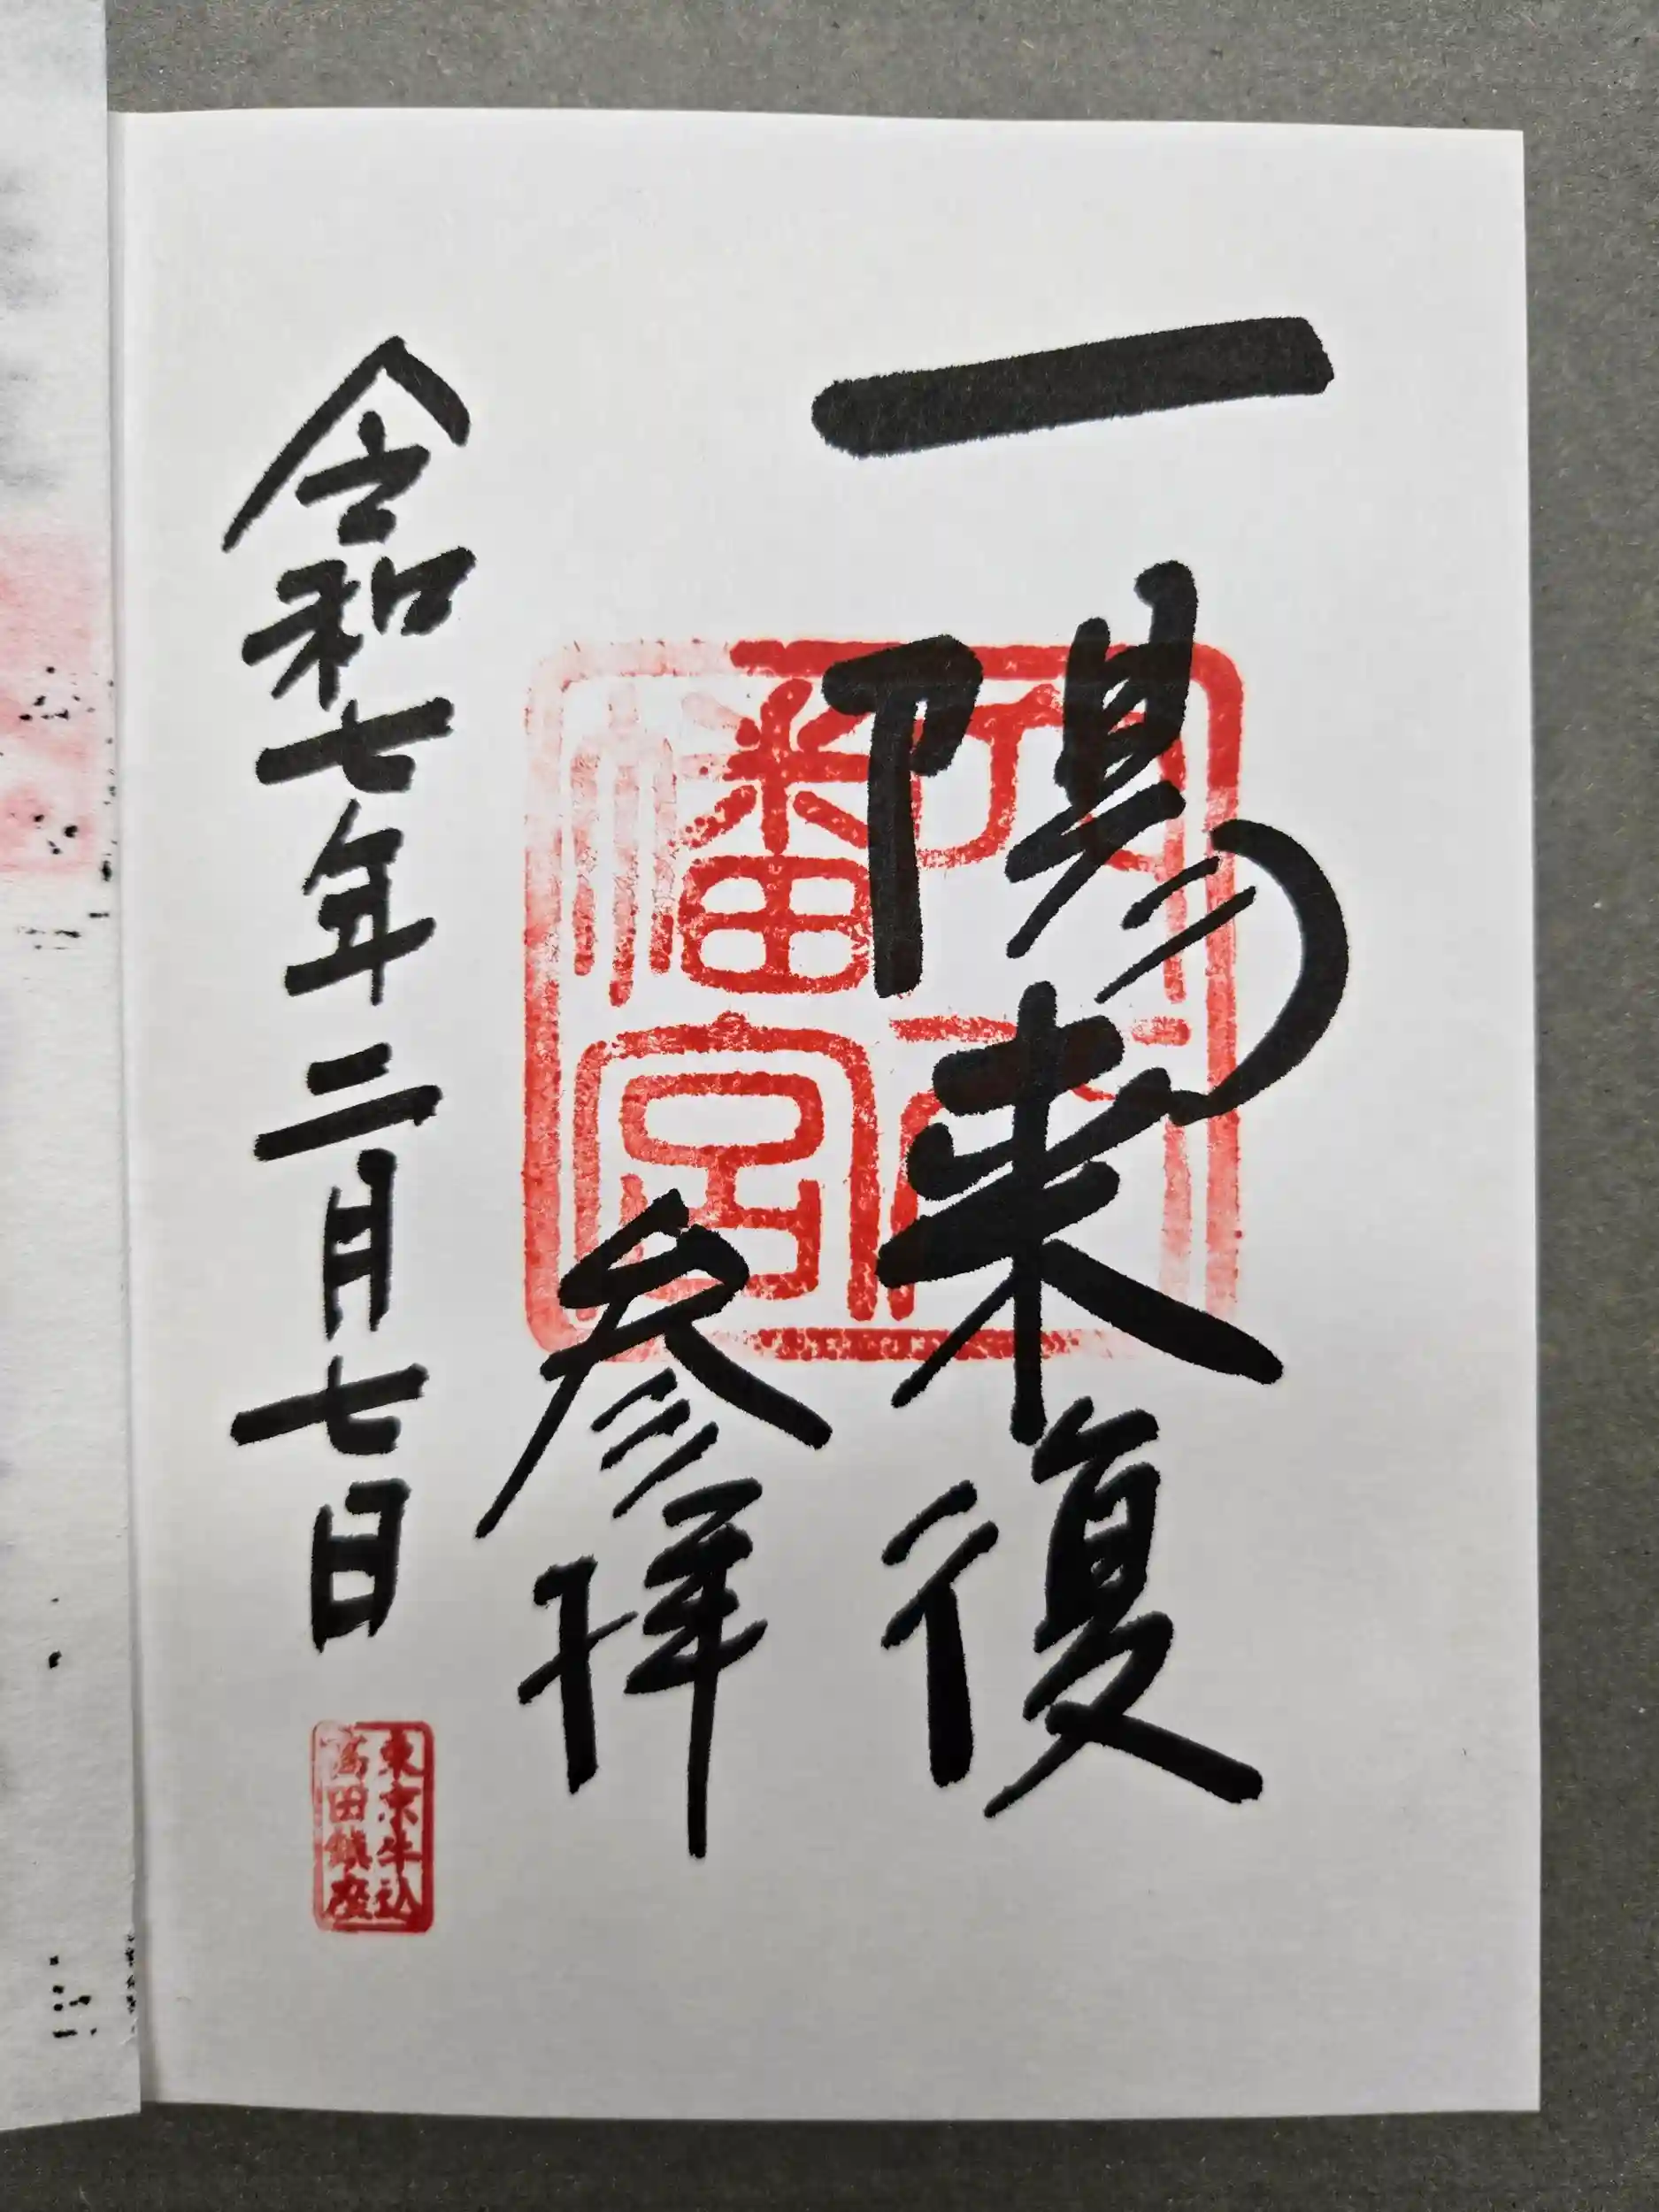 一陽来復
穴八
幡宮
参拝
令和七年二月七日
東京牛込
高田鎮座